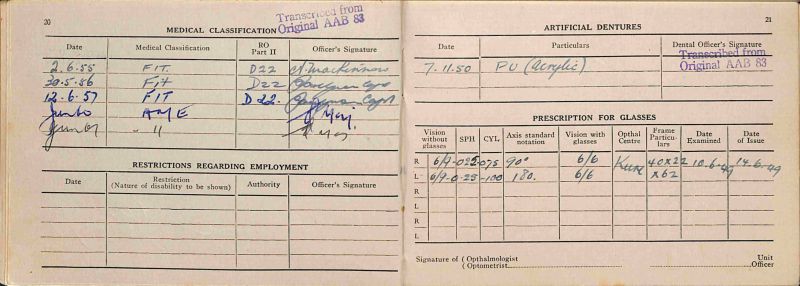 20
MEDICAL CLASSIFICATION
Transcribed from
Original AAB 83
Date Medical Classification RO Part II Officer's Signature
2.6.55 FIT D22
30.5.56 Fit D22
12.6.57 FIT D 22.
Jun 60 AME Maj
Jun 61 " "
RESTRICTIONS REGARDING EMPLOYMENT
Date Restriction (Nature of disability to be shown) Authority Officer's Signature
21
ARTIFICIAL DENTURES
Date Particulars Dental Officer's Signature
Transcribed from
Original AAB 83
7.11.50 PU (Acrylic)
PRESCRIPTION FOR GLASSES
Vision without glasses SPH CYL Axis standard notation Vision with glasses Opthal Centre Frame Particulars Date Examined Date of Issue
R 6/9 -0.25 -075 90° 6/6 40x22 10-6-49 14-6-49
L 6/9 -0-25 -100 180. 6/6 x62
R
L
R
L
Signature of ( Opthalmologist Unit
( Optometrist Officer